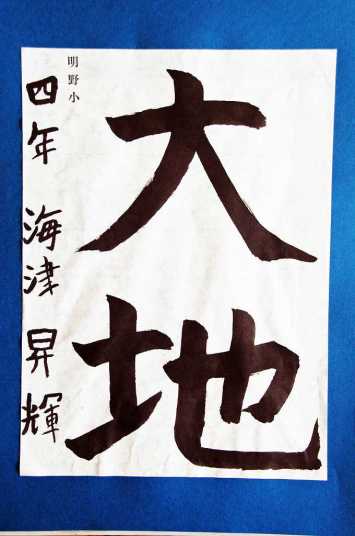 大地
明野小
四年 海津 昇輝